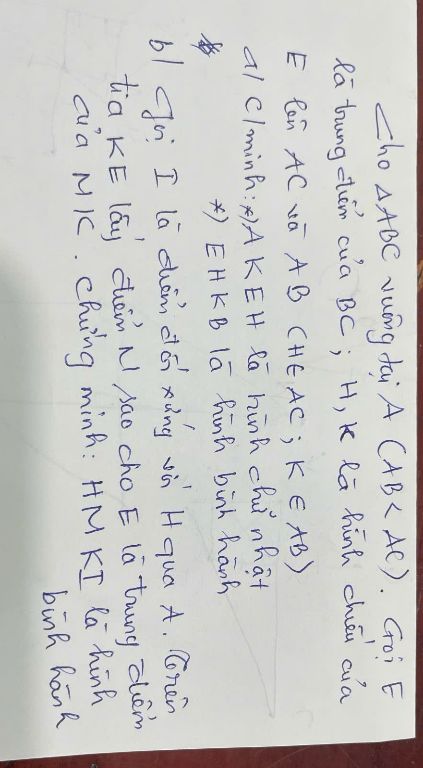 Cho ΔABC vuông tại A (AB < AC). Gọi E
là trung điểm của BC; H, K là hình chiếu của
E lên AC và AB (H∈AC; K∈AB)
a/ C/minh: *) AKEH là hình chữ nhật
*) EHKB là hình bình hành
b/ Gọi I là điểm đối xứng với H qua A. Trên
tia KE lấy điểm N sao cho E là trung điểm
của NK. Chứng minh: HMKI là hình
bình hành